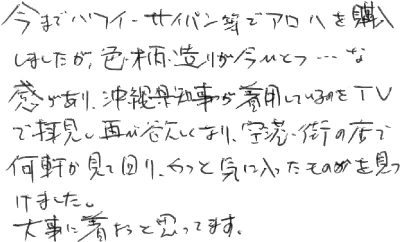 今までハワイ・サイパン等でアロハを購入
しましたが、色・柄・造りが今いとつ…な
感があり、沖縄県知事が着用しているのをTV
で拝見し再び欲しくなり、空港・街の店で
何軒か見て回り、やっと気に入ったものが見つ
けました。
大事に着ようと思ってます。